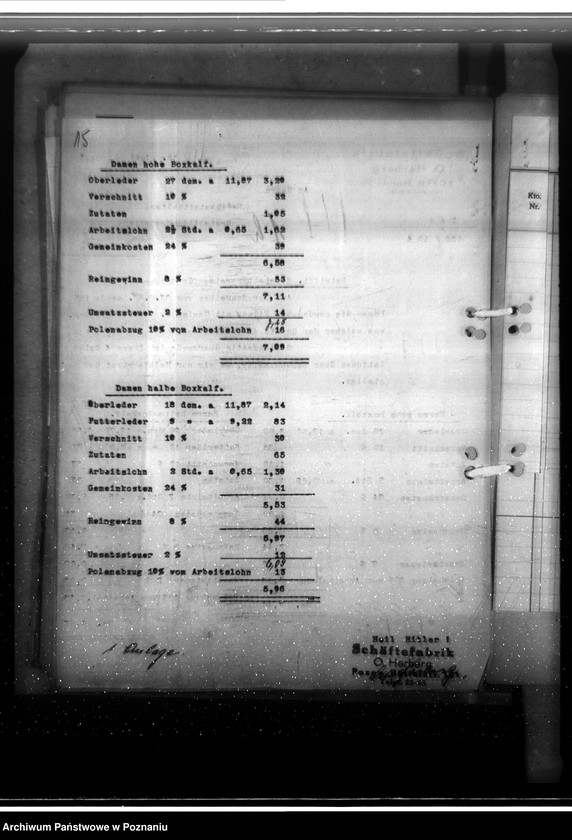 15
Damen hohe Boxkalf.
Oberleder 27 dem. a 11,87 3,20
Verschnitt 10 % 32
Zutaten 1,05
Arbeitslohn 2½ Std. a 0,65 1,62
Gemeinkosten 24 % 39
6,58
Reingewinn 8 % 53
7,11
Umsatzsteuer 2 % 14
Polenabzug 10% vom Arbeitslohn 16
7,09
Damen halbe Boxkalf.
Oberleder 18 dem. a 11,87 2,14
Futterleder 9 " a 9,22 83
Verschnitt 10 % 30
Zutaten 65
Arbeitslohn 2 Std. a 0,65 1,30
Gemeinkosten 24 % 31
5,53
Reingewinn 8 % 44
5,97
Umsatzsteuer 2 % 12
6,09
Polenabzug 10% vom Arbeitslohn 13
5,96
1 Anlage.
Heil Hitler !
Schäftefabrik
O. Herberg
Kto.
Nr.
Archiwum Państwowe w Poznaniu